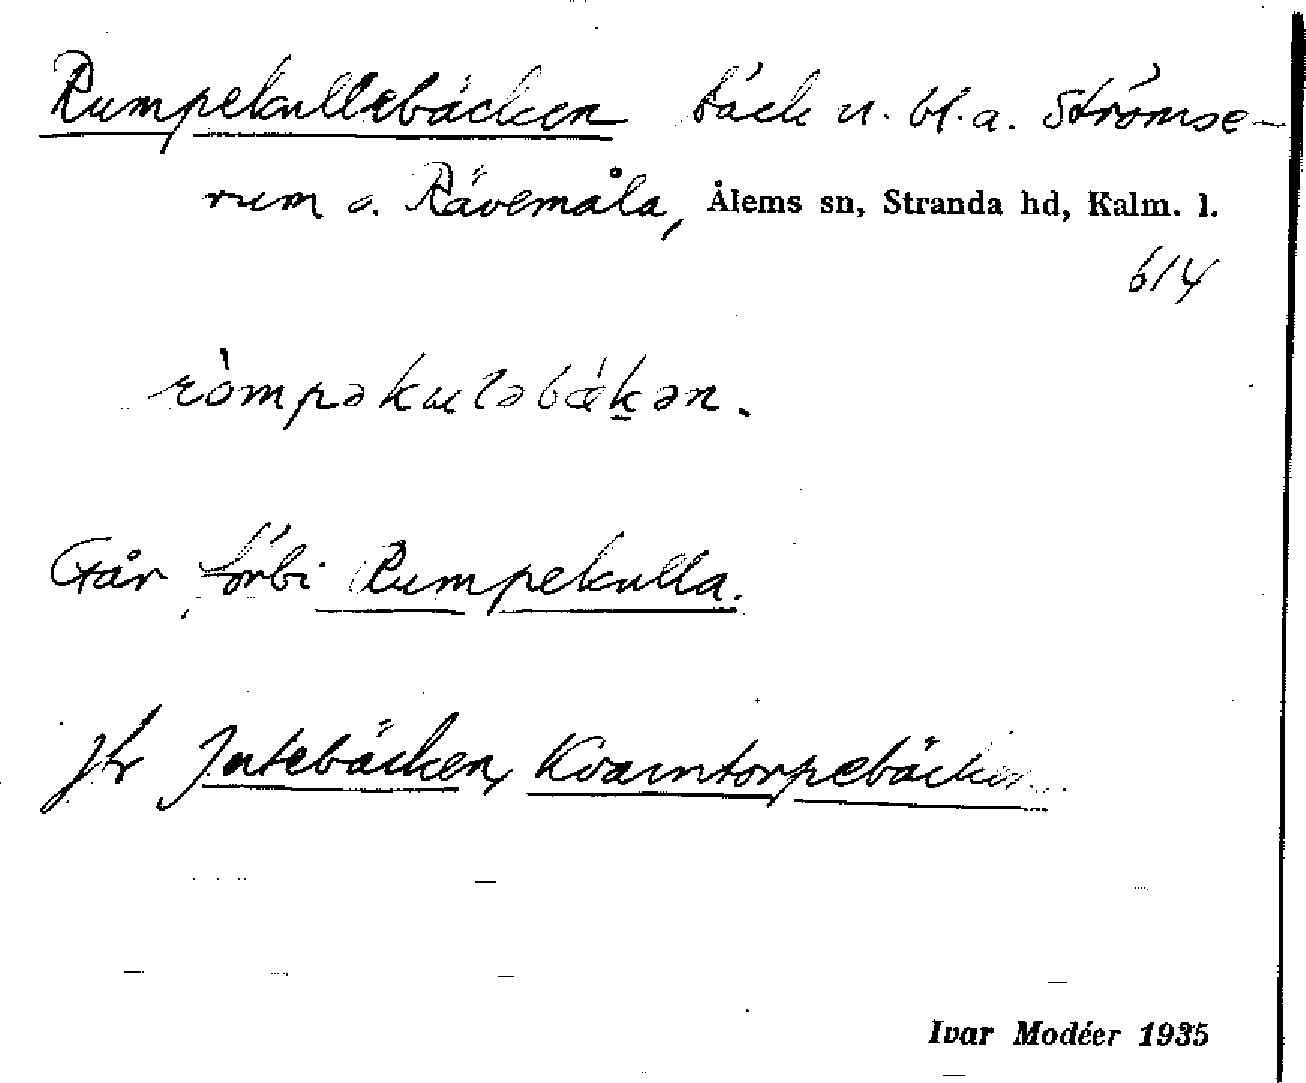 Rumpekullebäcken bäck u. bl.a. Strömse-
rum o. Rävemåla, Ålems sn, Stranda hd, Kalm. l.
614
ròmpəkuləbækən.
Går förbi Rumpekulla.
Jfr Jutebäcken, Kvarntorpebäcken
Ivar Modéer 1935